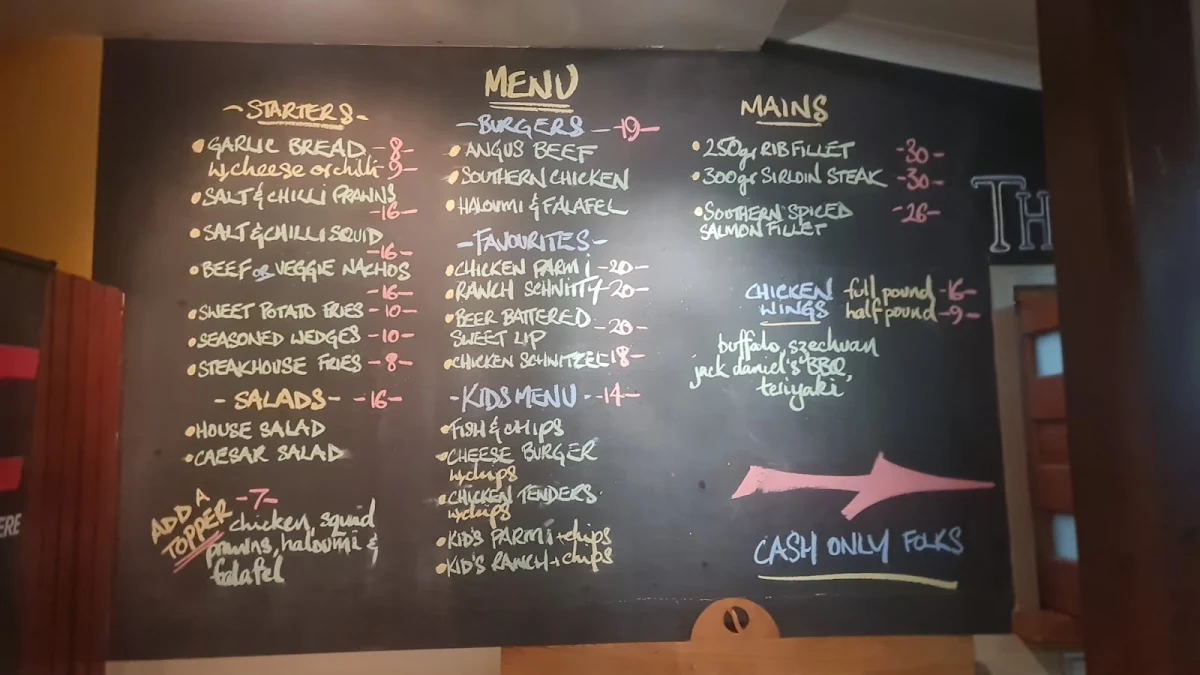 MENU
-STARTERS-
• GARLIC BREAD -8-
w, cheese or chilli 9-
• SALT & CHILLI PRAWNS
-16-
• SALT & CHILLI SQUID
-16-
• BEEF OR VEGGIE NACHOS
-16-
• SWEET POTATO FRIES -10-
• SEASONED WEDGES -10-
• STEAKHOUSE FRIES -8-
- SALADS- -16-
• HOUSE SALAD
• CAESAR SALAD
ADD A
TOPPER
-7-
chicken, squid
prawns, haloumi &
falafel
-BURGERS -19-
• ANGUS BEEF
• SOUTHERN CHICKEN
• HALOUMI & FALAFEL
-FAVOURITES-
• CHICKEN PARMI -20-
• RANCH SCHNITTY -20-
• BEER BATTERED
SWEET LIP -20-
• CHICKEN SCHNITZEL 18-
-KIDS MENU --14-
• FISH & CHIPS
• CHEESE BURGER
w,chips
• CHICKEN TENDERS
w,chips
• KID'S PARMI + chips
• KID'S RANCH + chips
MAINS
• 250gr RIB FILLET -30-
• 300gr SIRLOIN STEAK -30-
• SOUTHERN SPICED -26-
SALMON FILLET
CHICKEN full pound -16-
WINGS half pound -9-
buffalo, szechuan
jack daniel's BBQ,
teriyaki
CASH ONLY FOLKS
TH
ERE